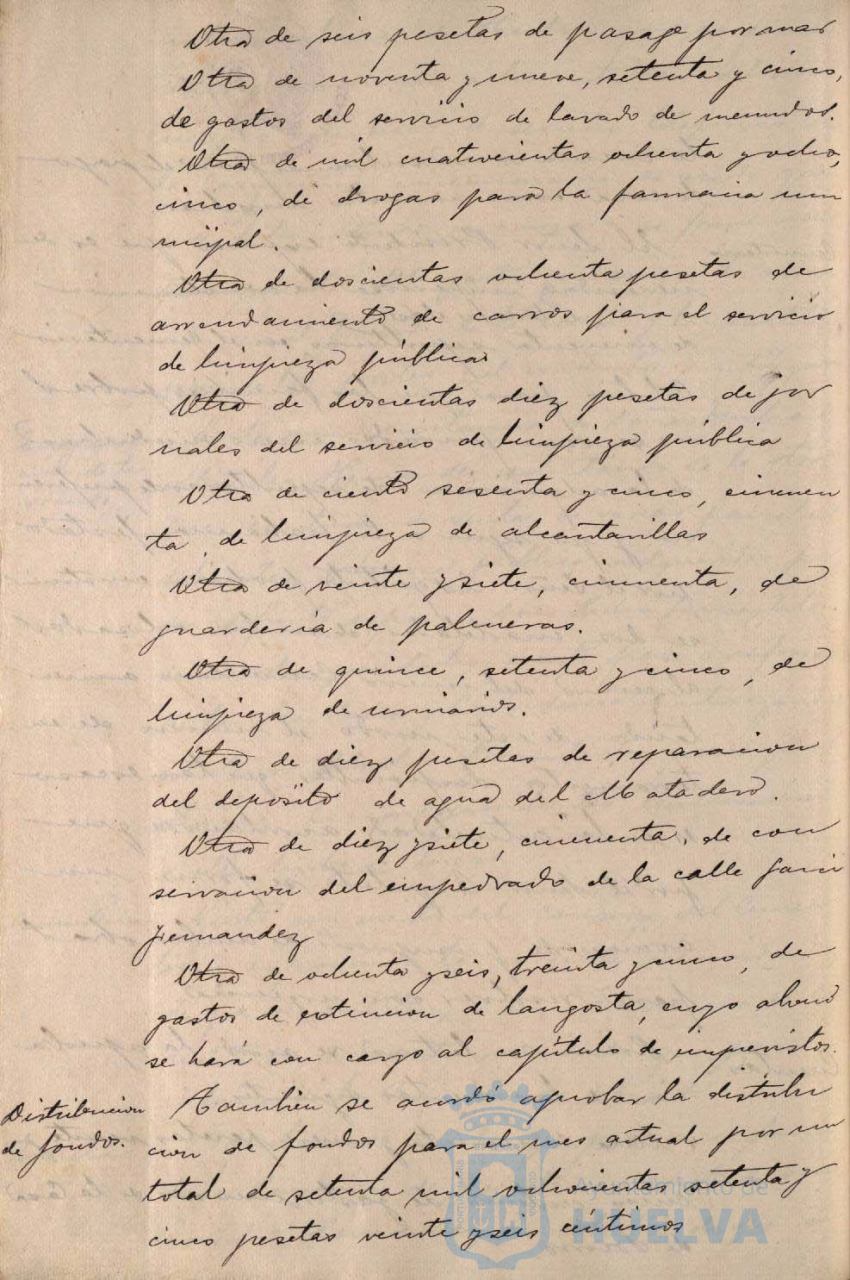 Otra de seis pesetas de pasage por mar
Otra de noventa y nueve, setenta y cinco,
de gastos del servicio de lavado de menudos.
Otra de mil cuatrocientas ochenta y ocho,
cinco, de drogas para la farmacia mu
nicipal.
Otra de doscientas ochenta pesetas de
arrendamiento de carros para el servicio
de limpieza pública
Otra de doscientas diez pesetas de jor
nales del servicio de limpieza pública
Otra de ciento sesenta y cinco, cincuen
ta, de limpieza de alcantarillas
Otra de veinte y siete, cincuenta, de
guardería de palmeras.
Otra de quince, setenta y cinco, de
limpieza de urinarios.
Otra de diez pesetas de reparacion
del depósito de agua del Matadero.
Otra de diez y siete, cincuenta, de con
servacion del empedrado de la calle Garci
Fernandez
Otra de ochenta y seis, treinta y cinco, de
gastos de extincion de langosta, cuyo abono
se hará con cargo al capítulo de imprevistos.
Distribucion
de fondos.
Tambien se acordó aprobar la distribu
cion de fondos para el mes actual por un
total de setenta mil ochocientas setenta y
cinco pesetas veinte y seis céntimos
Ayuntamiento de
HUELVA